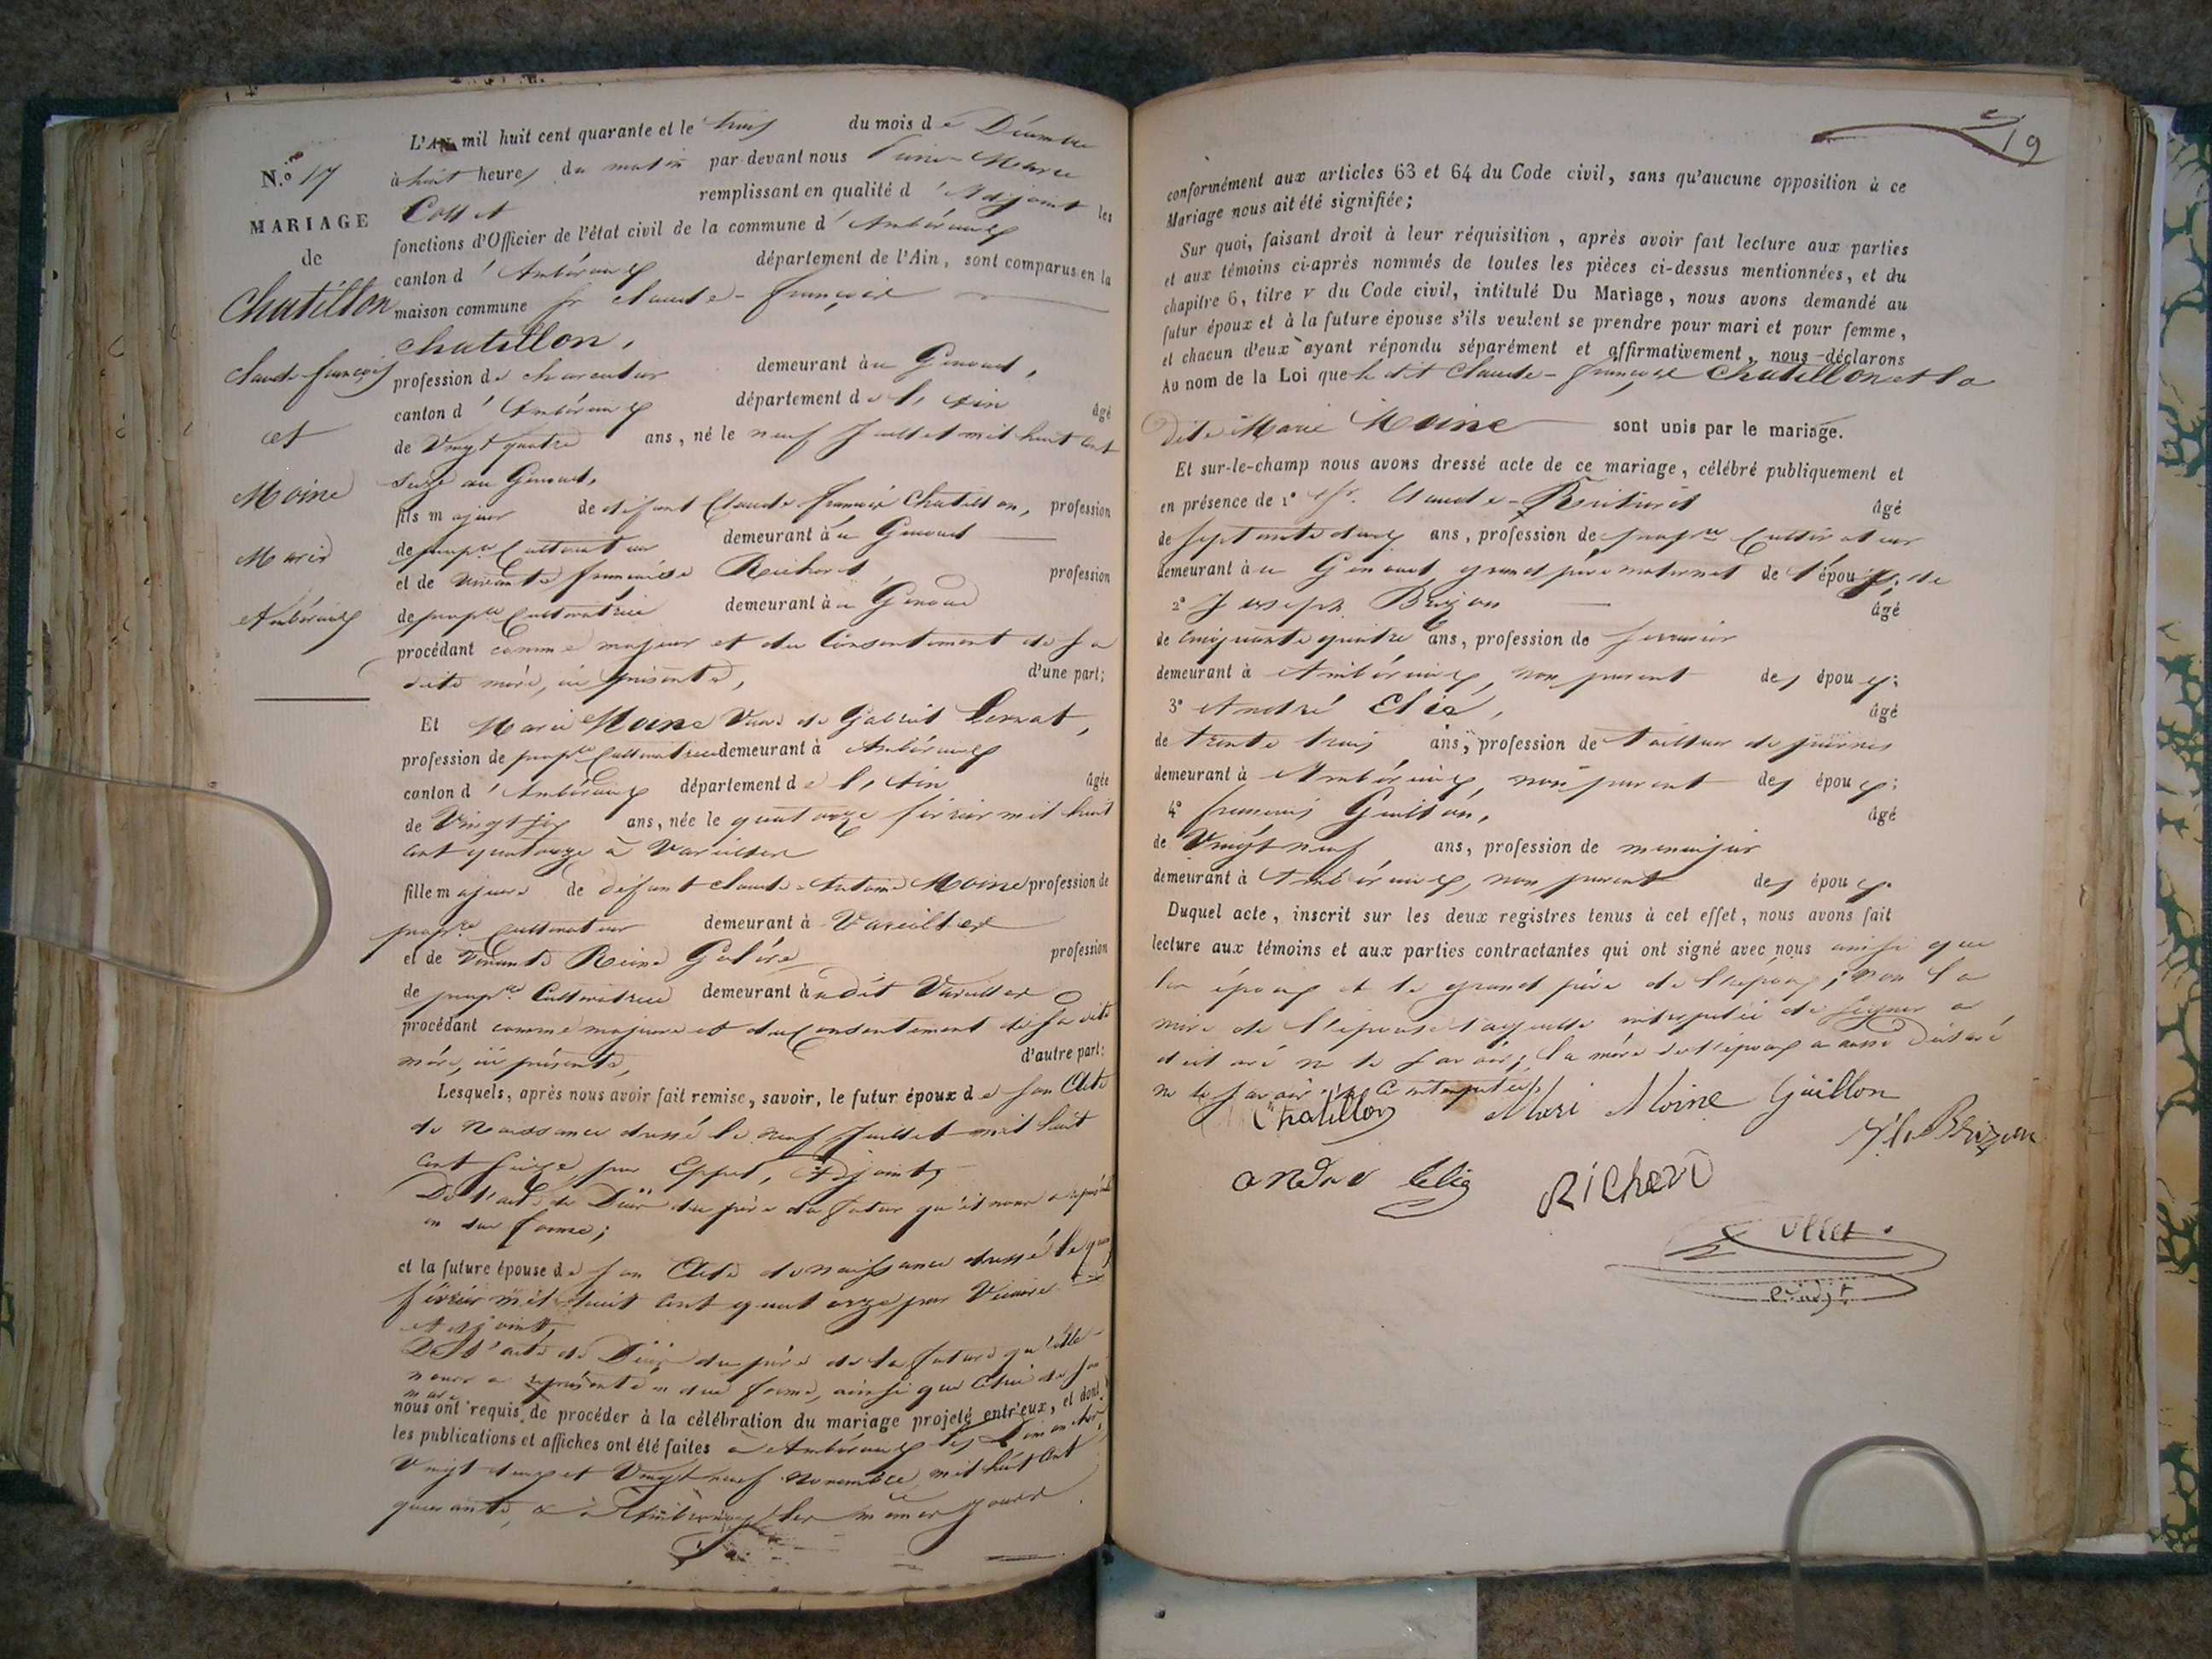 N.o 17
MARIAGE
de
Chatillon
Claude françois
et
Moine
Marie
Ambérieux
L'AN mil huit cent quarante et le trois du mois de Décembre
à huit heures du matin par devant nous Marie
Collet remplissant en qualité d'Adjoint les
fonctions d'Officier de l'état civil de la commune d'Ambérieux
canton d'Ambérieux département de l'Ain, sont comparus en la
maison commune Sr claude-françois
chatillon,
profession de demeurant au Genoud,
canton d'Ambérieux département de l'Ain âgé
de Vingt quatre ans, né le neuf Juillet mil huit cent
Seize au Genoud,
fils majeur de défunt Claude françois Chatillon, profession
de propre Cultivateur demeurant au Genoud
et de vivante françoise Richerot, profession
de propre Cultivatrice demeurant au Genoud
procédant comme majeur et du Consentement de Sa
dite mère, ici présente, d'une part;
Et Marie Moine Veuve de Gabriel,
profession de propre Cultivatrice demeurant à Ambérieux
canton d'Ambérieux département de l'Ain âgée
de Vingt six ans, née le quatorze février mil huit
cent quatorze à Vareilles
fille majeure de défunt claude-Antoine Moine profession de
propre Cultivateur demeurant à Vareilles
et de Vivante Reine profession
de propre Cultivatrice demeurant audit Vareilles
procédant comme majeure et du Consentement de Sa dite
mère, ici présente, d'autre part:
Lesquels, après nous avoir fait remise, savoir, le futur époux de son Acte
de Naissance dressé le neuf Juillet mil huit
cent seize, par, Adjoint,
De l'acte de Décès du père du futur qu'il nous a représenté
en due forme;
et la future épouse de son Acte de naissance dressé le
février mil huit cent quatorze par
Adjoint,
De l'acte de Décès du père de la future qu'elle
nous a représenté en due forme, ainsi que celui de son
mari
nous ont requis de procéder à la célébration du mariage projeté entr'eux, et dont
les publications et affiches ont été faites à Ambérieux les Dimanches
Vingt deux et Vingt neuf Novembre mil huit cent
quarante, & à Ambérieux les mêmes jours.
19
conformément aux articles 63 et 64 du Code civil, sans qu'aucune opposition à ce
Mariage nous ait été signifiée;
Sur quoi, faisant droit à leur réquisition, après avoir fait lecture aux parties
et aux témoins ci-après nommés de toutes les pièces ci-dessus mentionnées, et du
chapitre 6, titre v du Code civil, intitulé Du Mariage, nous avons demandé au
futur époux et à la future épouse s'ils veulent se prendre pour mari et pour femme,
et chacun d'eux ayant répondu séparément et affirmativement, nous déclarons
Au nom de la Loi que le dit Claude-françois Chatillon et la
Dite Marie Moine sont unis par le mariage.
Et sur-le-champ nous avons dressé acte de ce mariage, célébré publiquement et
en présence de 1° Sr. Claude- âgé
de Septante deux ans, profession de propre Cultivateur
demeurant au Genoud, grand père maternel de l'époux;
2° Joseph Brizon âgé
de cinquante quatre ans, profession de
demeurant à Ambérieux, non parent des époux;
3° André Elie, âgé
de trente trois ans, profession de tailleur de pierres
demeurant à Ambérieux, non parent des époux;
4° françois Guillon, âgé
de Vingt neuf ans, profession de menuisier
demeurant à Ambérieux, non parent des époux.
Duquel acte, inscrit sur les deux registres tenus à cet effet, nous avons fait
lecture aux témoins et aux parties contractantes qui ont signé avec nous ainsi que
les époux et le grand père de l'époux; non la
mère de l'épouse laquelle interpellée de Signer a
déclaré ne le Savoir; la mère de l'époux a aussi Déclaré
ne le Savoir
Chatillon Mari Moine Guillon
Brizon
andre Elie Richerd
Collet
adjt